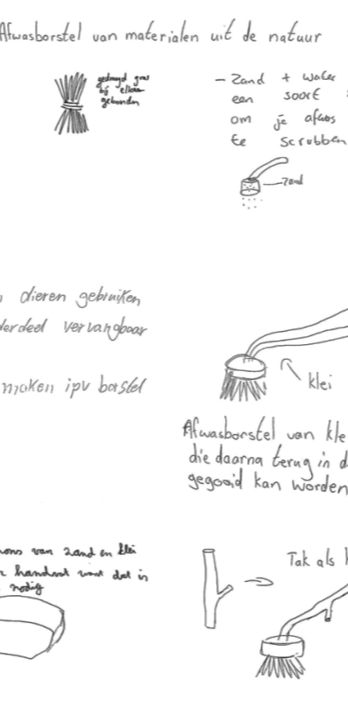 Afwasborstel van materialen uit de natuur
gedroogd gras
bij elkaar
gebonden
- Zand + water
een soort
om je afwas
te scrubben
zand
dieren gebruiken
vervangbaar
maken ipv borstel
klei
Afwasborstel van kle
die daarna terug in d
gegooid kan worden
van zand en klei
dat is
nodig
Tak als